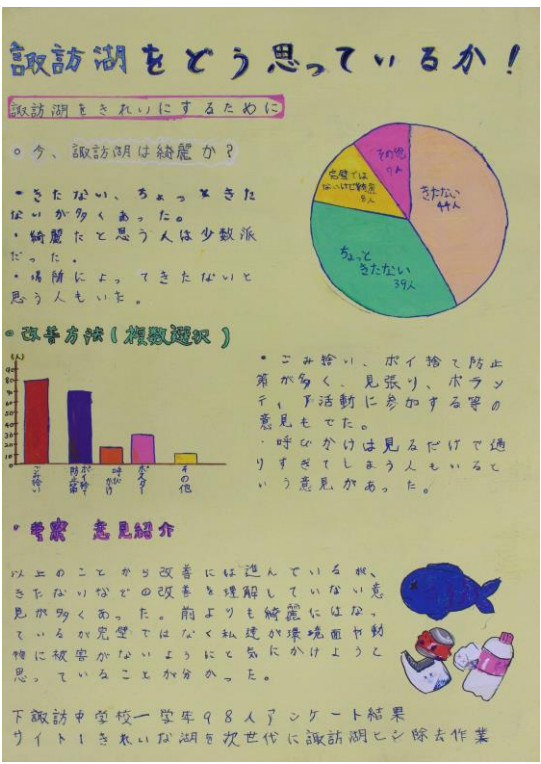 諏訪湖をどう思っているか！
諏訪湖をきれいにするために
○今、諏訪湖は綺麗か？
・きたない、ちょっときた
ないが多くあった。
・綺麗だと思う人は少数派
だった。
・場所によってきたないと
思う人もいた。
その他
きたない
44人
ちょっと
きたない
39人
完璧では
ないけど綺麗
8人
・改善方法(複数選択)
(人)
90
80
70
60
50
40
30
20
10
ごみ拾い
ポイ捨て
防止策
呼び
かけ
ポスター
その他
・ごみ拾い、ポイ捨て防止
策が多く、見張り、ボラン
ティア活動に参加する等の
意見もでた。
・呼びかけは見るだけで通
りすぎてしまう人もいると
いう意見があった。
・考察 意見紹介
以上のことから改善には進んでいるが、
きたないなどの改善を理解していない意
見が多くあった。前よりも綺麗にはなっ
ているが完璧ではなく私達が環境面や動
物に被害がないようにと気にかけようと
思っていることが分かった。
下諏訪中学校一学年98人アンケート結果
サイト1きれいな湖を次世代に諏訪湖ヒシ除去作業